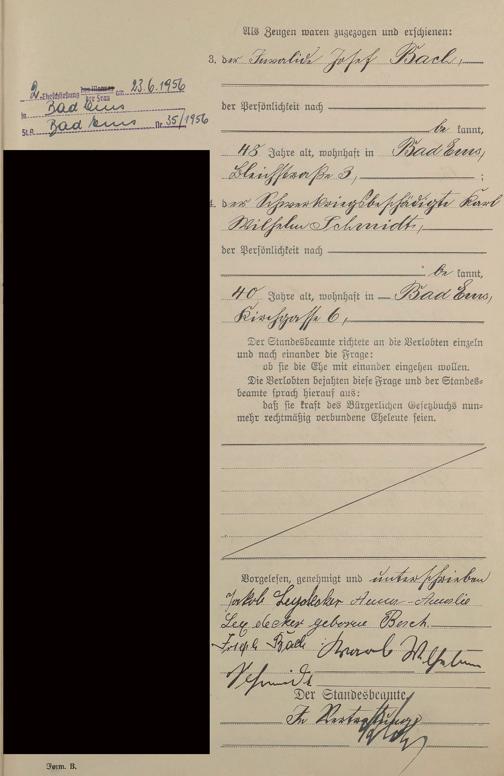 Als Zeugen waren zugezogen und erschienen:
3. der Invalide Josef Bach,
der Persönlichkeit nach
be kannt,
48 Jahre alt, wohnhaft in Bad Ems,
Bleichstraße 3, ;
4. der Schwerkriegsbeschädigte Karl
Wilhelm Schmidt,
der Persönlichkeit nach
be kannt,
40 Jahre alt, wohnhaft in Bad Ems,
Kirchgasse 6,
Der Standesbeamte richtete an die Verlobten einzeln
und nach einander die Frage:
ob sie die Ehe mit einander eingehen wollen.
Die Verlobten bejahten diese Frage und der Standes-
beamte sprach hierauf aus:
daß sie kraft des Bürgerlichen Gesetzbuchs nun-
mehr rechtmäßig verbundene Eheleute seien.
Vorgelesen, genehmigt und unterschrieben
Jakob Leydecker Anna Amalie
Leydecker geborne Besch
Joseph Bach Karl Wilhelm
Schmidt
Der Standesbeamte
In Vertretung
2. Eheschließung des Mannes der Frau am 23.6.1956
in Bad Ems
St.A. Bad Ems Nr. 35/1956
Form. B.